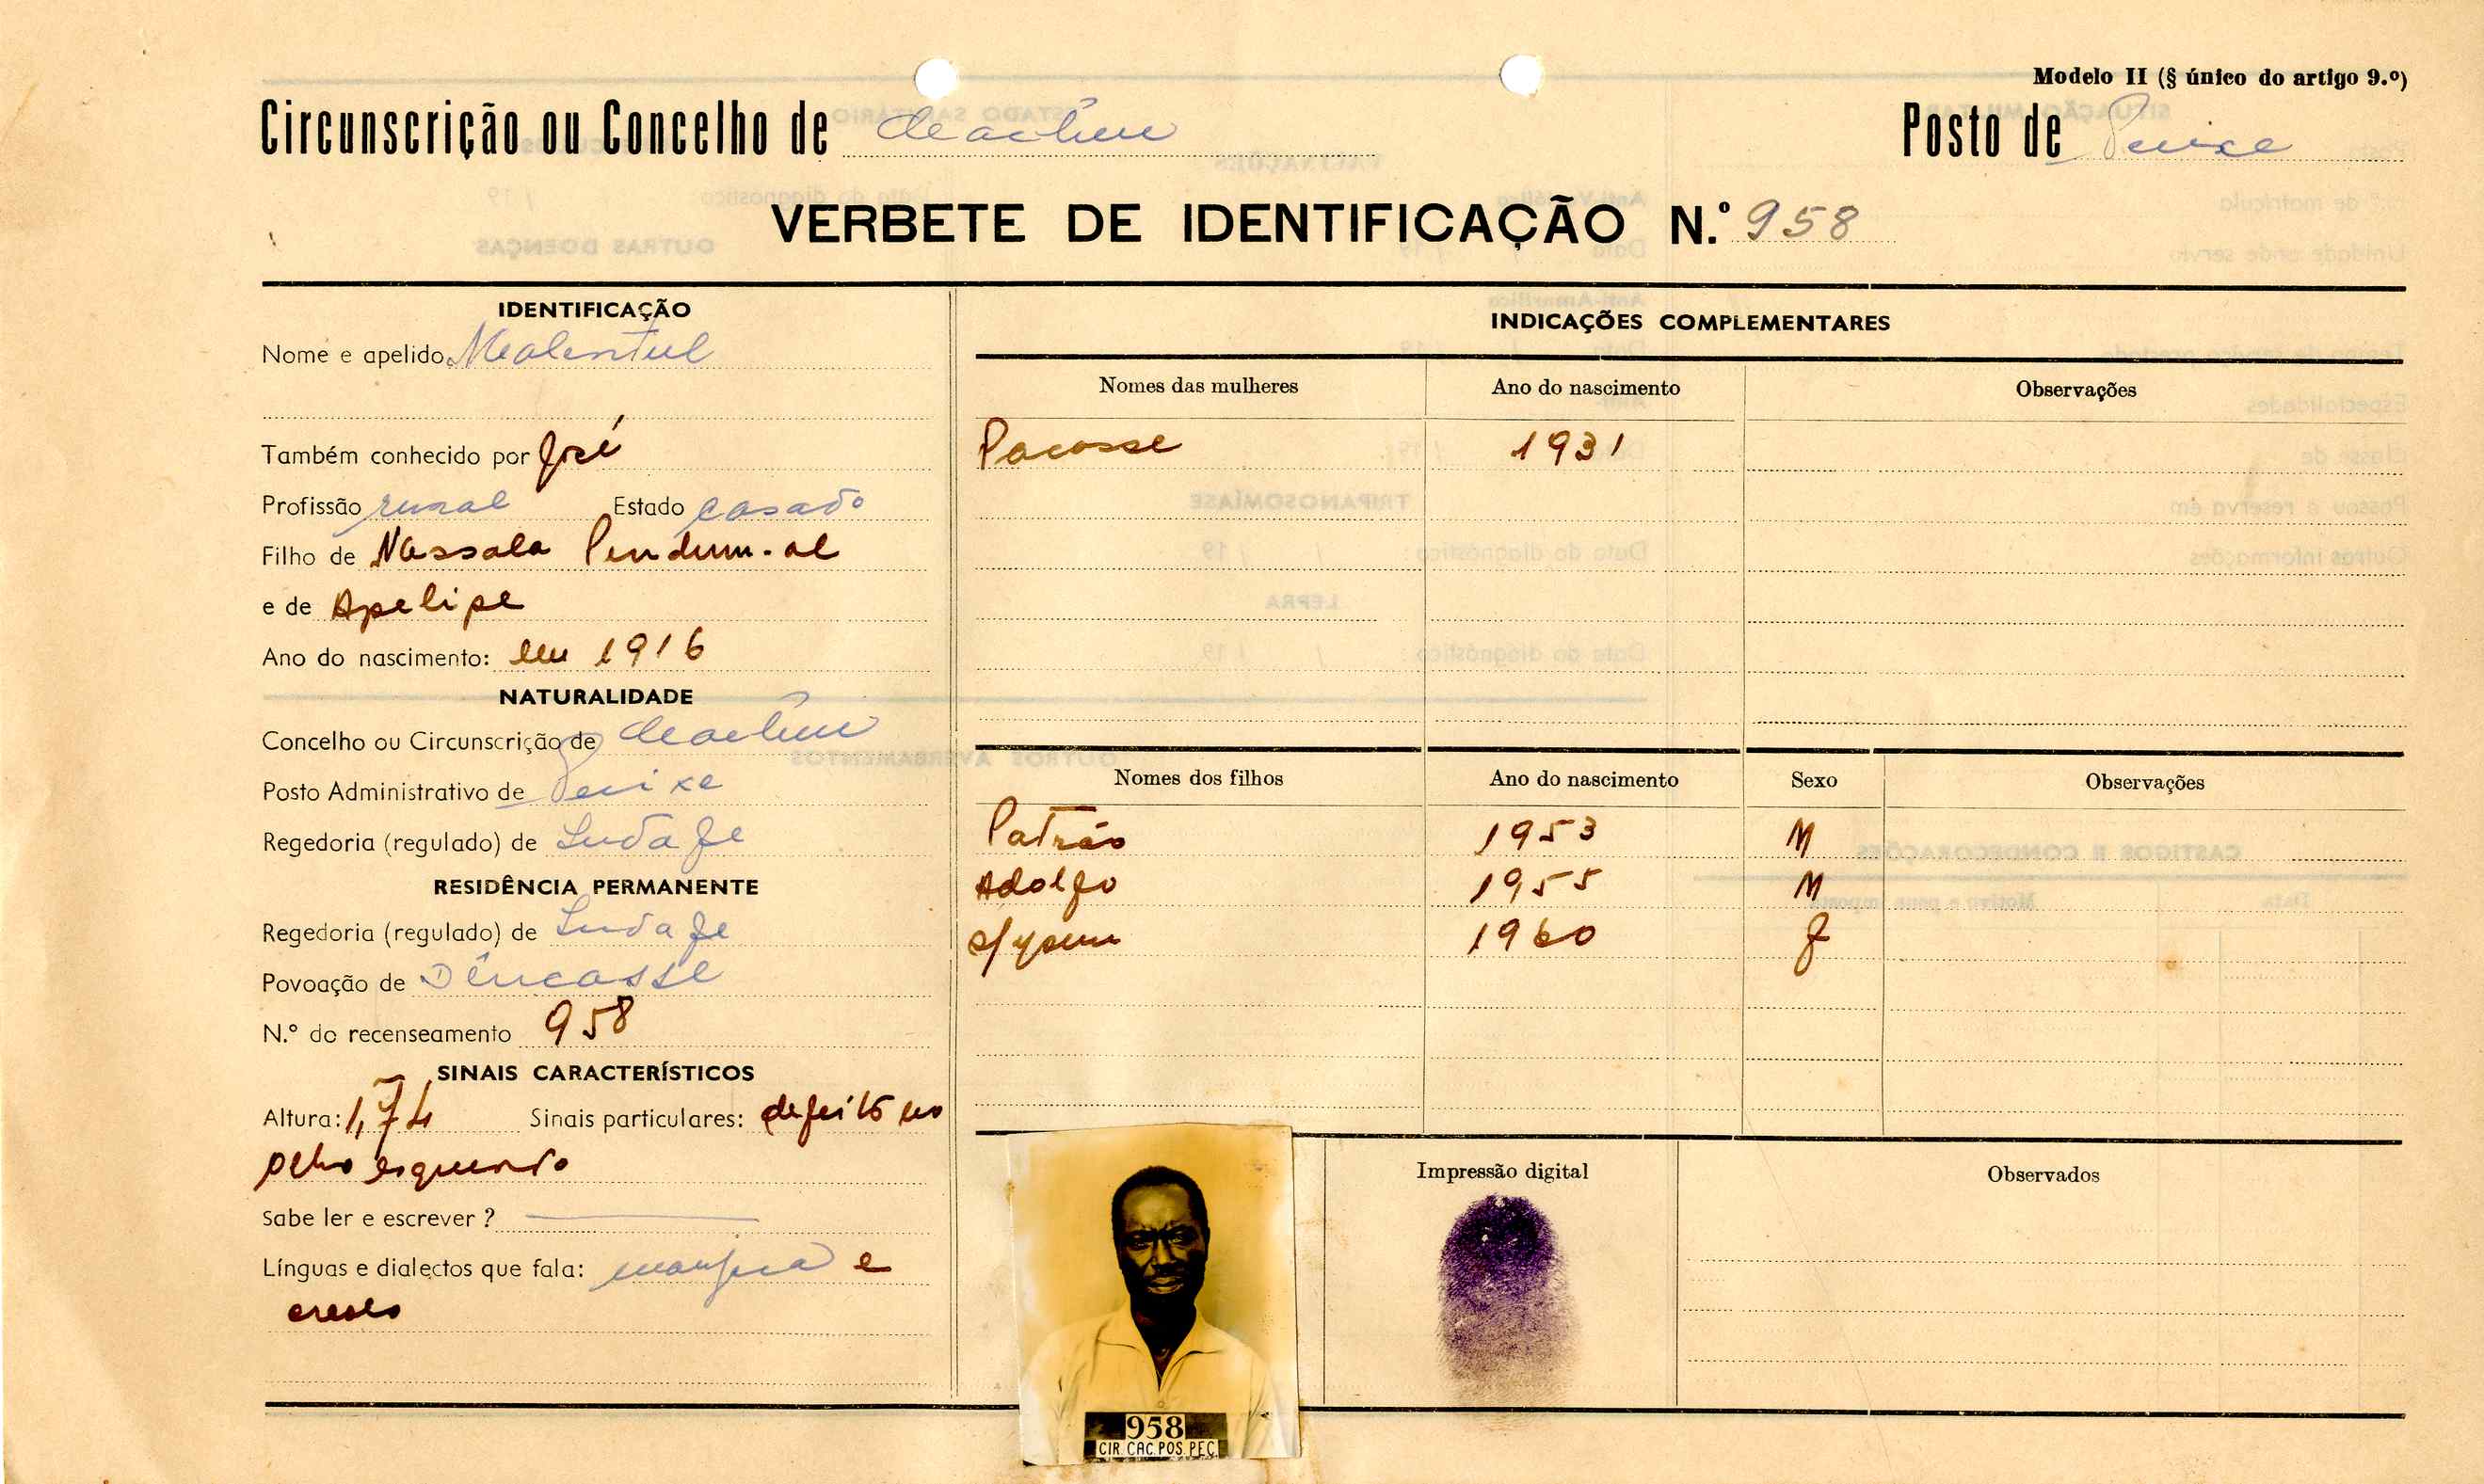 Modelo II (§ único do artigo 9.º)
Circunscrição ou Concelho de
Posto de
VERBETE DE IDENTIFICAÇÃO N.º 958
IDENTIFICAÇÃO
Nome e apelido
Também conhecido por José
Profissão rural Estado casado
Filho de Nassala
e de Apelipe
Ano do nascimento: em 1916
NATURALIDADE
Concelho ou Circunscrição de
Posto Administrativo de
Regedoria (regulado) de
RESIDÊNCIA PERMANENTE
Regedoria (regulado) de
Povoação de
N.º do recenseamento 958
SINAIS CARACTERÍSTICOS
Altura: 1,74 Sinais particulares: defeito no
olho esquerdo
Sabe ler e escrever ?
Línguas e dialectos que fala: e
creolo
INDICAÇÕES COMPLEMENTARES
Nomes das mulheres Ano do nascimento Observações
Pacasse 1931
Nomes dos filhos Ano do nascimento Sexo Observações
Patrão 1953 M
Adolfo 1955 M
1960 F
Impressão digital
Observados
958
CIR. CAC. POS. PEC.